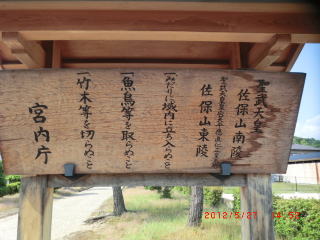 聖武天皇
佐保山南陵
聖武天皇皇后天平応真仁正皇太后
佐保山東陵
一みだりに域内に立ち入らぬこと
一魚鳥等を取らぬこと
一竹木等を切らぬこと
宮内庁
2012/5/27